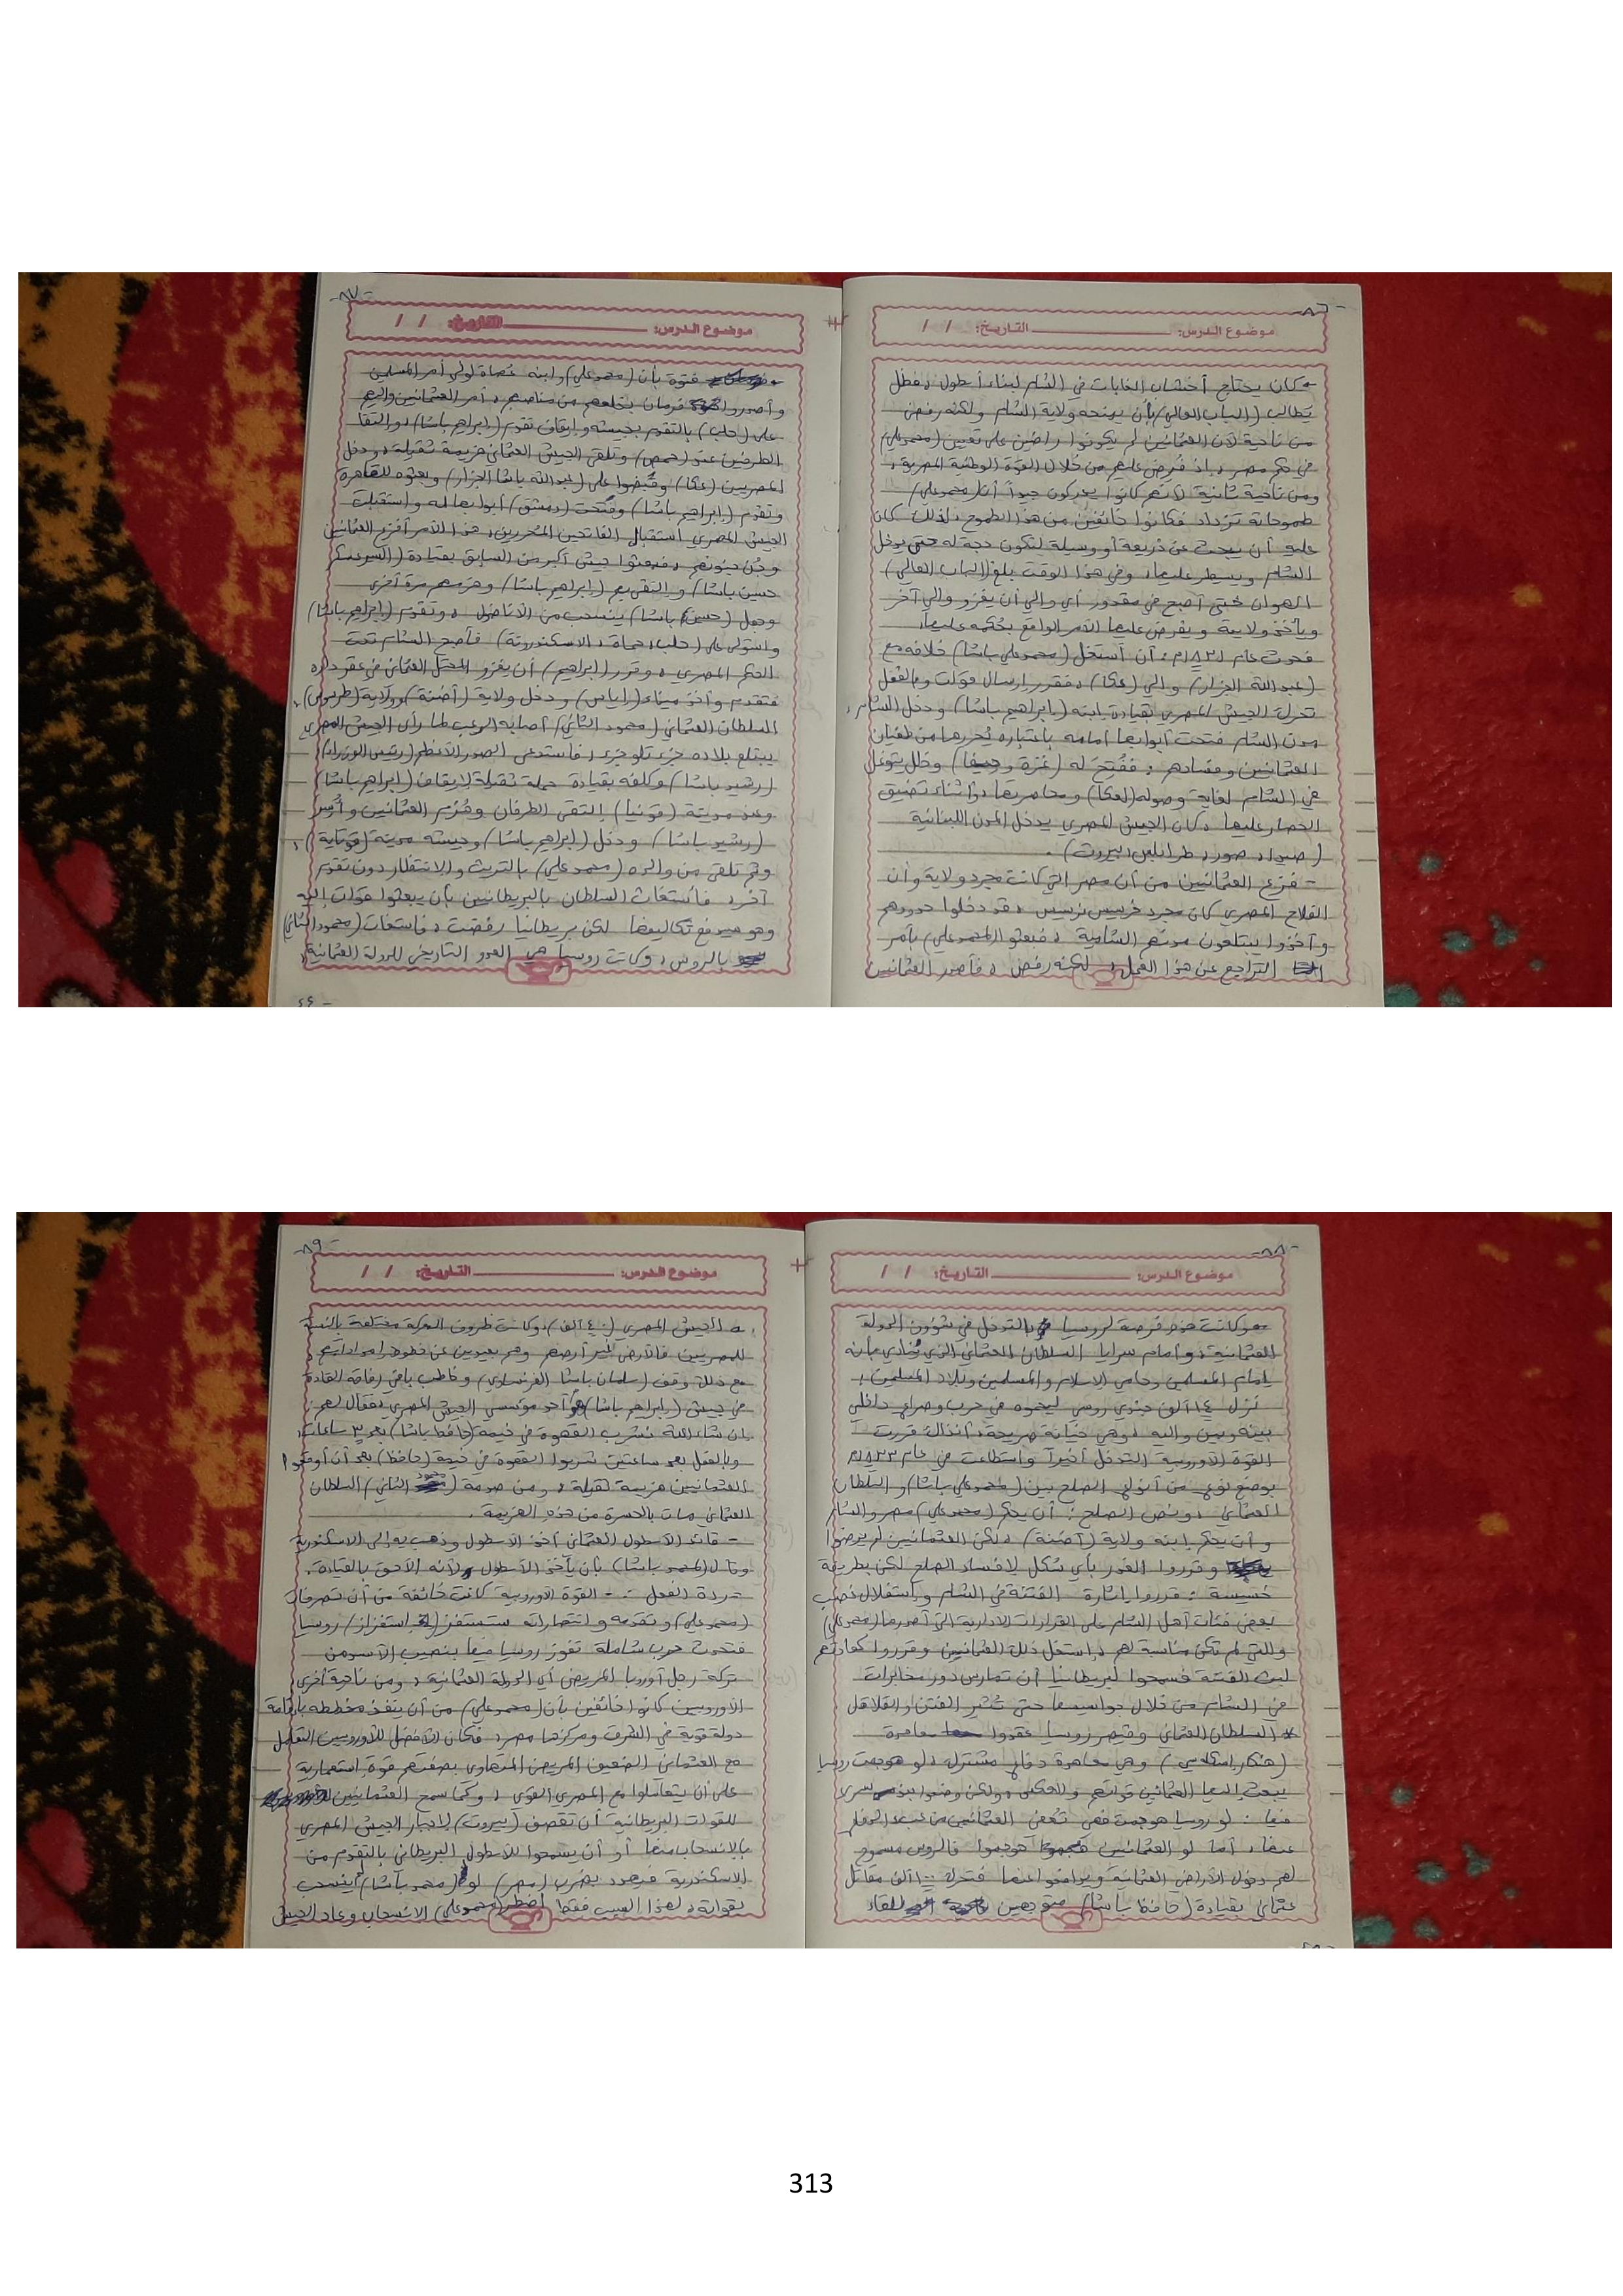 -٨٦-
موضوع الدرس: التاريخ: / /
كان يحتاج أخشاب الغابات في الشام لبناء أسطول، فظل
يطالب (الباب العالي) بأن يمنحه ولاية الشام ولكنه رفض
من ناحية لأن العثمانيين لم يكونوا راضين على تعيين (محمد علي)
في حكم مصر، بل فُرض عليهم من خلال القوة الوطنية المصرية،
ومن ناحية ثانية لأنهم كانوا يدركون جيداً أن (محمد علي)
طموحاته تزداد فكانوا خائفين من هذا الطموح، لذلك كان
عليه أن يبحث عن ذريعة أو وسيلة لتكون حجة له حتى يدخل
الشام ويسيطر عليها، وفي هذا الوقت بلغ (الباب العالي)
الهوان حتى أصبح في مقدور أي والي أن يغزو والي آخر
ويأخذ ولايته ويفرض عليها الأمر الواقع بحكمه عليها،
فحدث عام ١٨٣١م، أن استغل (محمد علي باشا) خلافه مع
(عبد الله الجزار) والي (عكا)، فقرر إرسال قوات وبالفعل
تحرك الجيش المصري بقيادة ابنه (إبراهيم باشا) ودخل الشام،
مدن الشام فتحت أبوابها أمامه باعتباره يُحررها من طغيان
العثمانيين وفسادهم، ففُتِح له (غزة وحيفا) وظل يتوغل
في الشام لغاية وصوله (لعكا) ومحاصرتها، وأثناء تضييق
الحصار عليها، كان الجيش المصري يدخل المدن اللبنانية
(صيدا، صور، طرابلس، بيروت).
- فزع العثمانيين من أن مصر التي كانت مجرد ولاية وأن
الفلاح المصري كان مجرد خرسيس نرسيس، قد دخلوا حدودهم
وأخذوا يبتلعون مدنهم الشامية، فبعثوا (لمحمد علي) بأمر
التراجع عن هذا العمل، لكنه رفض، فأصدر العثمانيين
-٨٧-
موضوع الدرس: التاريخ: / /
فتوة بأن (محمد علي) وابنه عصاة لولي أمر المسلمين
وأصدروا فرمان بخلعهم من مناصبهم، أمر العثمانيين واليهم
على (حلب) بالتقدم بجيشه وإيقاف تقدم (إبراهيم باشا)، والتقا
الطرفين عند (حمص) وتلقى الجيش العثماني هزيمة ثقيلة، ودخل
المصريين (عكا) وقبضوا على (عبد الله باشا الجزار) وبعثوه للقاهرة
وتقدم (إبراهيم باشا) وفتحت (دمشق) أبوابها له واستقبلت
الجيش المصري استقبال الفاتحين المحررين، هذا الأمر أفزع العثمانيين
وجن جنونهم، فبعثوا جيش أكبر من السابق بقيادة (السرعسكر
حسين باشا) والتقى بهم (إبراهيم باشا) وهزمهم مرة أخرى
وجعل (حسين باشا) ينسحب من الأناضول، وتقدم (إبراهيم باشا)
واستولى على (حلب، حماة، الاسكندرونة) فأصبح الشام تحت
الحكم المصري، وقرر (إبراهيم) أن يغزو المحتل العثماني في عقر داره
فتقدم وأخذ ميناء (إياس) ودخل ولاية (أضنة) وولاية (طرسوس)،
السلطان العثماني (محمود الثاني) أصابه الرعب لما رأى الجيش المصري
يبتلع بلاده جزء تلو جزء، فاستدعى الصدر الأعظم (رئيس الوزراء)
(رشيد باشا) وكلفه بقيادة حملة ثقيلة لإيقاف (إبراهيم باشا)
وعند مدينة (قونيا) إلتقى الطرفان وهُزم العثمانيين وأُسر
(رشيد باشا) ودخل (إبراهيم باشا) وجيشه مدينة (قوتاية)،
وثم تلقى من والده (محمد علي) بالتريث والانتظار دون تقدم
آخر، فأستغاث السلطان بالبريطانيين بأن يبعثوا قوات إليه
وهو سيدفع تكاليفها لكن بريطانيا رفضت، فاستغاث (محمود الثاني)
بالروس، وكانت روسيا هي العدو التاريخي للدولة العثمانية،
-٨٨-
موضوع الدرس: التاريخ: / /
وكانت فرصة لروسيا بالتدخل في شؤون الدولة
العثمانية، وأمام سرايا السلطان العثماني الذي يُنادي بأنه
إمام المسلمين وحامي الاسلام والمسلمين وبلاد المسلمين،
نزل ١٤ ألف جندي روسي ليحموه في حرب وصراع داخلي
بينه وبين واليه، وهي خيانة صريحة، أنذاك قررت
القوة الأوروبية التدخل أخيراً واستطاعت في عام ١٨٣٣م
بوضع نوع من أنواع الصلح بين (محمد علي باشا) والسلطان
العثماني، ونص الصلح: أن يحكم (محمد علي) مصر والشام
وأن يحكم ابنه ولاية (آضنة)، لكن العثمانيين لم يرضوا
وقرروا الغدر بأي شكل لإفساد الصلح لكن بطريقة
خسيسة، قرروا إثارة الفتنة في الشام واستغلال غضب
بعض فئات أهل الشام على القرارات الادارية التي أصدرها (محمد علي)
والتي لم تكن مناسبة لهم، استغل ذلك العثمانيين وقرروا كعادتهم
لبث الفتنة فسمحوا لبريطانيا أن تمارس دور مخابرات
في الشام من خلال جواسيسها حتى تُثير الفتن والقلاقل
* السلطان العثماني وقيصر روسيا عقدوا معاهدة
(هنكار إسكلاسي) وهي معاهدة دفاع مشترك، لو هوجمت روسيا
يبعث إليها العثمانيين قواتهم والعكس، ولكن وضعوا بند سري
فيها: لو روسيا هوجمت فهي تُعفي العثمانيين من عبء الدفاع
عنها، أما لو العثمانيين هوجموا فالروس مسموح
لهم دخول الأراضي العثمانية ويدافعوا عنها فتحرك ١٠٠ ألف مقاتل
عثماني بقيادة (حافظ باشا) متوجهين للقاء
-٨٩-
موضوع الدرس: التاريخ: / /
الجيش المصري (٤٠ ألف)، وكانت ظروف المعركة مختلفة بالنسبة
للمصريين فالأرض غير أرضهم وهم بعيدين عن خطوط إمداداتهم،
مع ذلك وقف (سلمان باشا الفرنساوي) وخاطب باقي رفاقه القادة
في جيش (إبراهيم باشا) هو أحد مؤسسي الجيش المصري، فقال لهم:
إن شاء الله نشرب القهوة في خيمة (حافظ باشا) بعد ٣ ساعات،
وبالفعل بعد ساعتين شربوا القهوة في خيمة (حافظ) بعد أن أوقعوا
العثمانيين هزيمة ثقيلة، ومن صدمة (محمود الثاني) السلطان
العثماني مات بالحسرة من هذه الهزيمة.
- قائد الأسطول العثماني أخذ الأسطول وذهب به إلى الاسكندرية
وقال (لمحمد باشا) بأن يأخذ الأسطول لأنه الأحق بالقيادة.
ردة الفعل: - القوة الأوروبية كانت خائفة من أن تصرفات
(محمد علي) وتقدمه وانتصاراته ستستفز استفزاز روسيا
فتحدث حرب شاملة تفوز روسيا فيها بنصيب الأسد من
تركة رجل أوروبا المريض أي الدولة العثمانية، ومن ناحية أخرى
الأوروبيين كانوا خائفين بأن (محمد علي) من أن ينفذ مخططه بإقامة
دولة قوية في الشرق ومركزها مصر، فكان الأفضل للأوروبيين التعامل
مع العثماني الضعيف المريض المتهاوي بصفتهم قوة استعمارية
على أن يتعاملوا مع المصري القوي، وكما سمح العثمانيين
للقوات البريطانية أن تقصف (بيروت) لإجبار الجيش المصري
بالانسحاب منها أو أن يسمحوا للأسطول البريطاني بالتقدم من
الاسكندرية فيهدد بضرب (مصر) لو (محمد باشا) لم ينسحب
بقواته، لهذا السبب فقط اضطر (محمد علي) الانسحاب وعاد الجيش
313